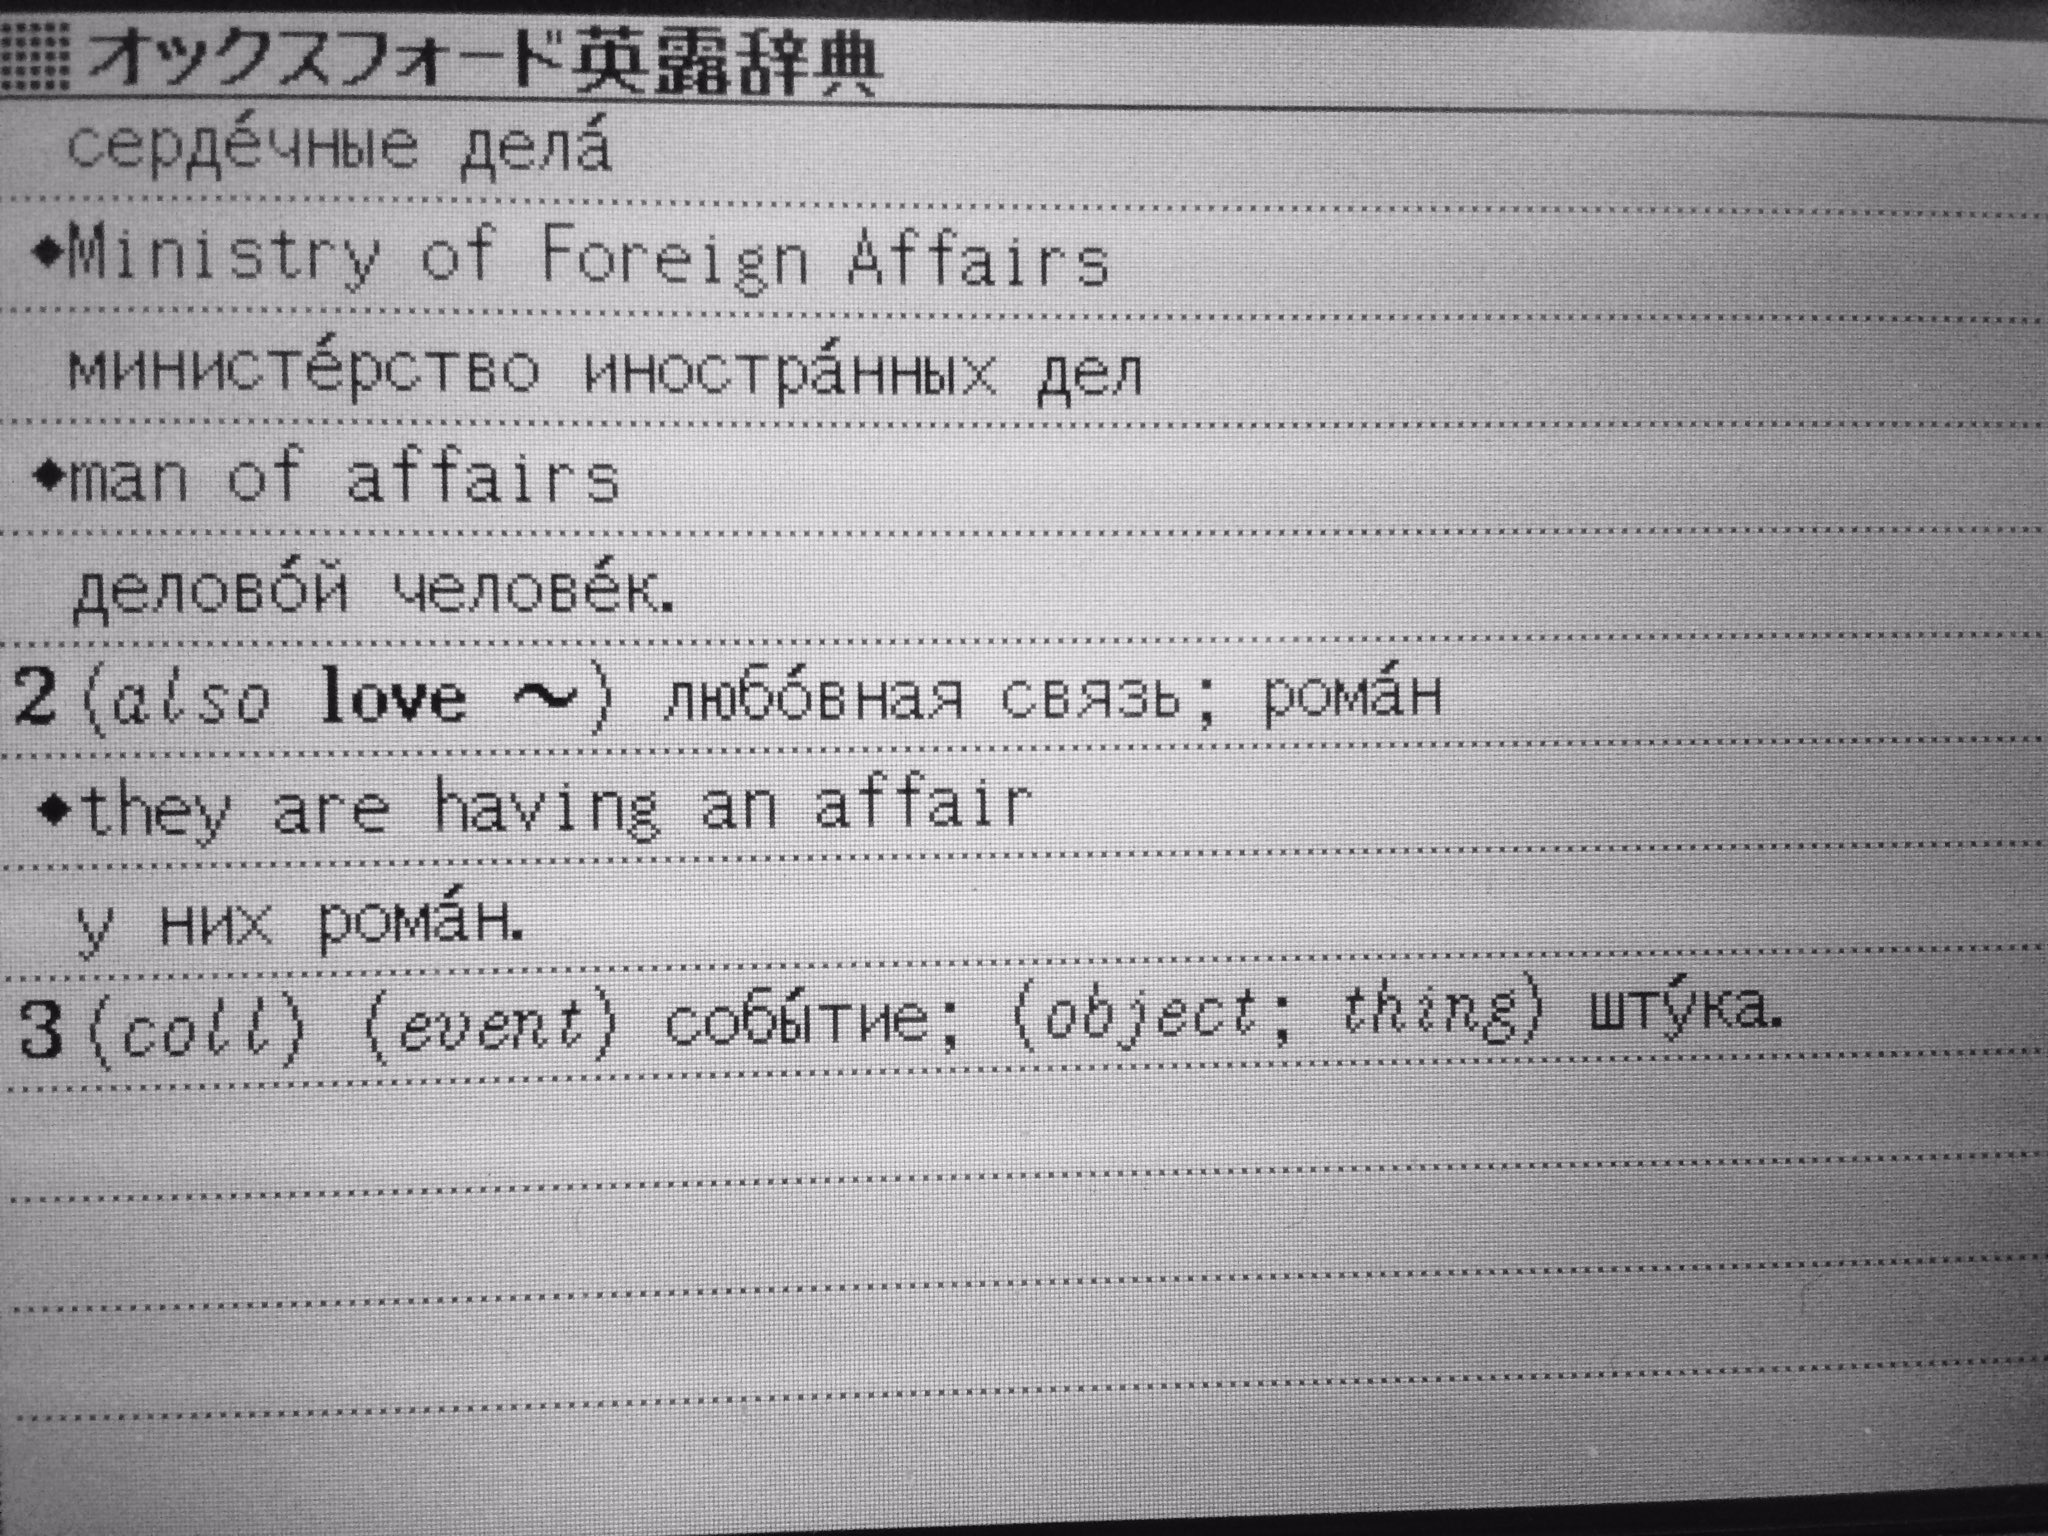 オックスフォード英露辞典
серде́чные дела́
◆Ministry of Foreign Affairs
министе́рство иностра́нных дел
◆man of affairs
делово́й челове́к.
2 (also love ~) любо́вная связь; рома́н
◆they are having an affair
у них рома́н.
3 (coll) (event) собы́тие; (object; thing) шту́ка.